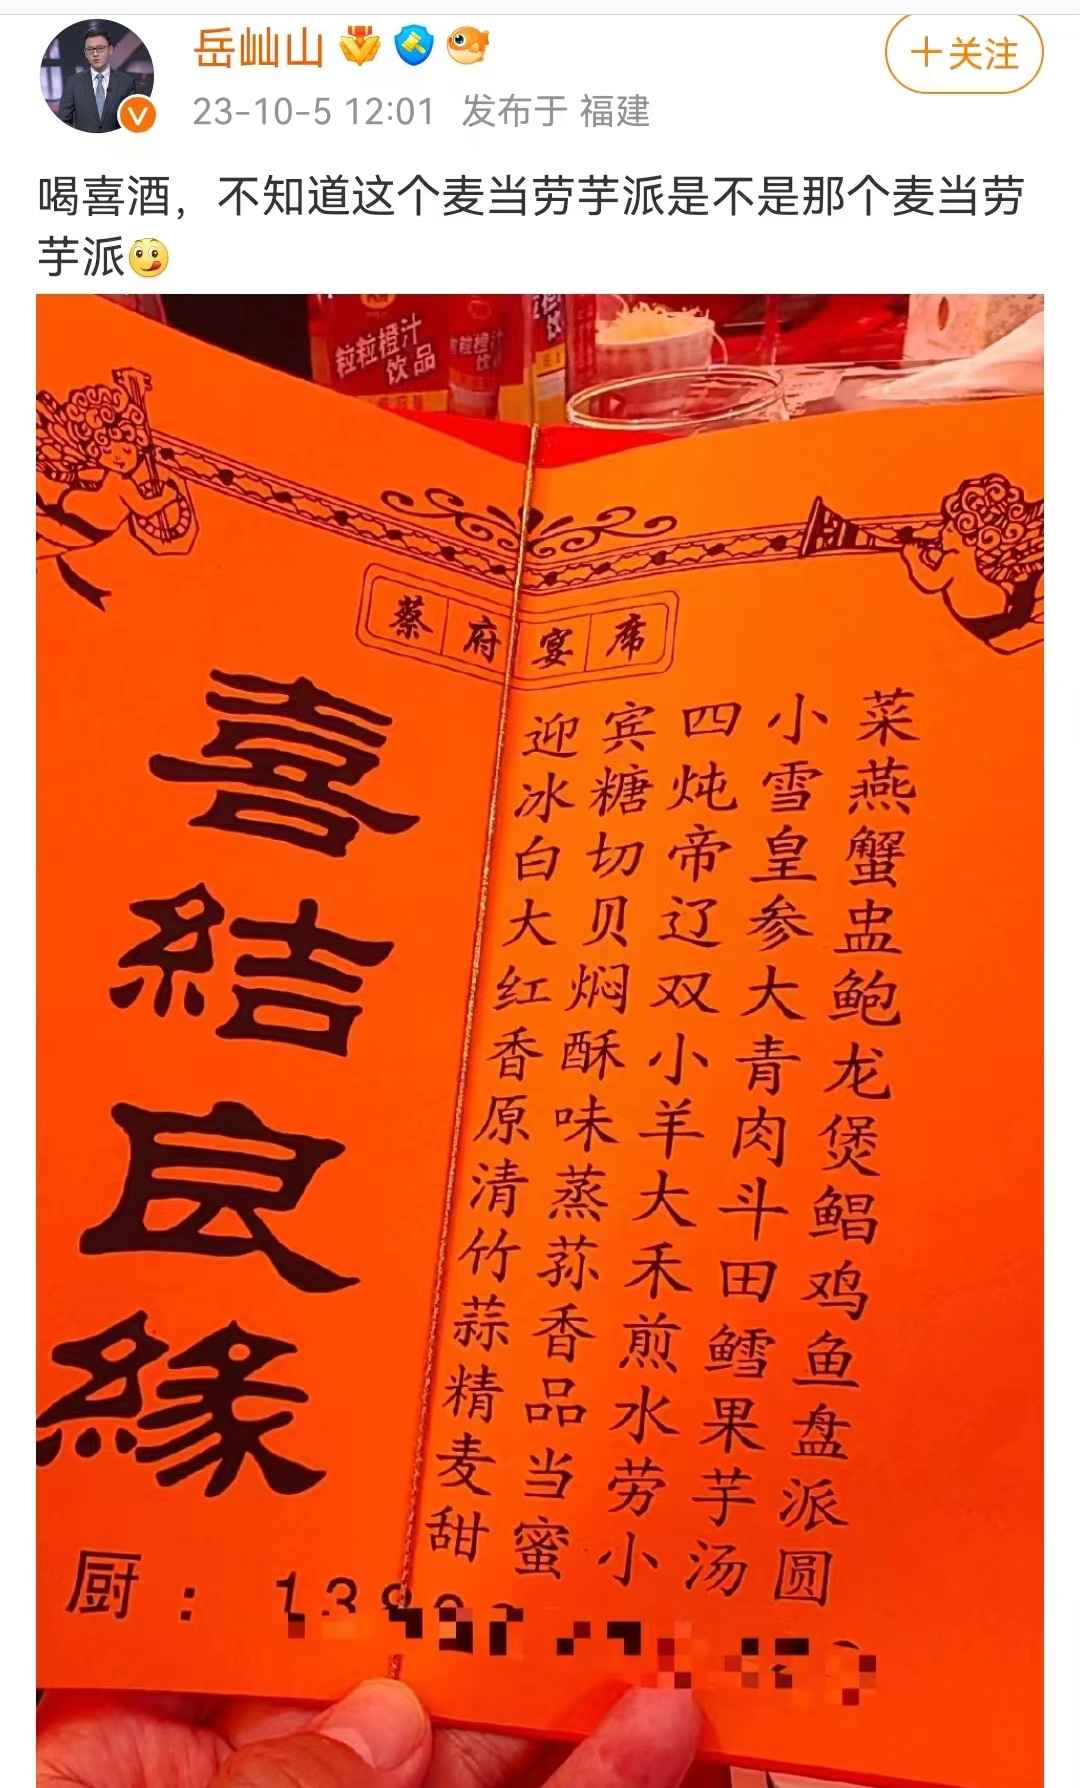 岳屾山
+关注
23-10-5 12:01 发布于 福建
喝喜酒，不知道这个麦当劳芋派是不是那个麦当劳
芋派
粒粒橙汁
饮品
蔡府宴席
喜結良緣
迎宾四小菜
冰糖炖雪燕
白切帝皇蟹
大贝辽参盅
红焖双大鲍
香酥小青龙
原味羊肉煲
清蒸大斗鲳
竹荪禾田鸡
蒜香煎鳕鱼
精品水果盘
麦当劳芋派
甜蜜小汤圆
厨：